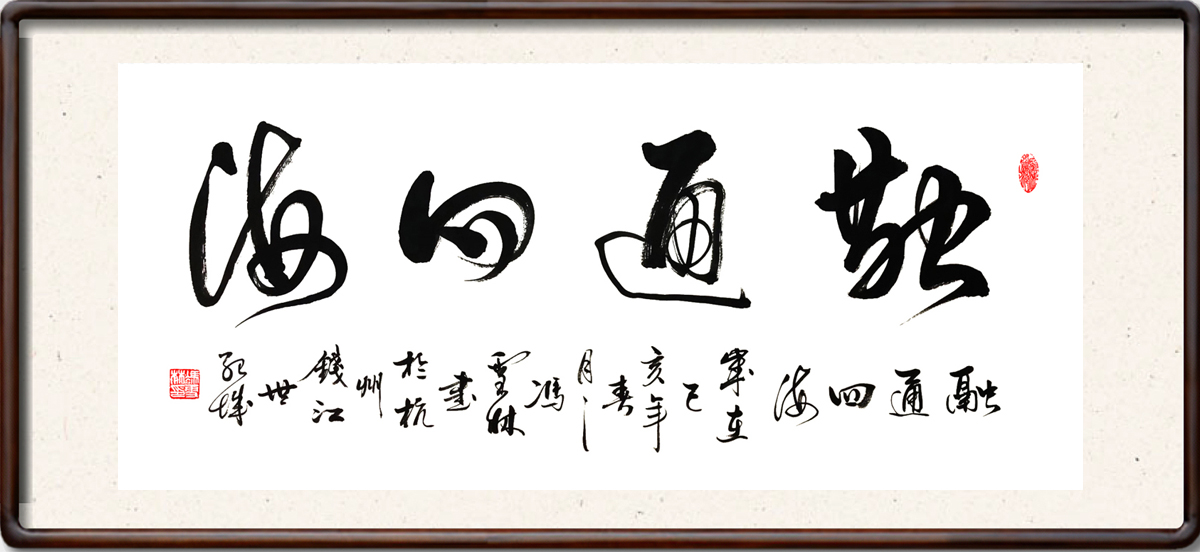 融通四海
融通四海 歲在己亥年春月 馮雲林書於杭州錢江世紀城